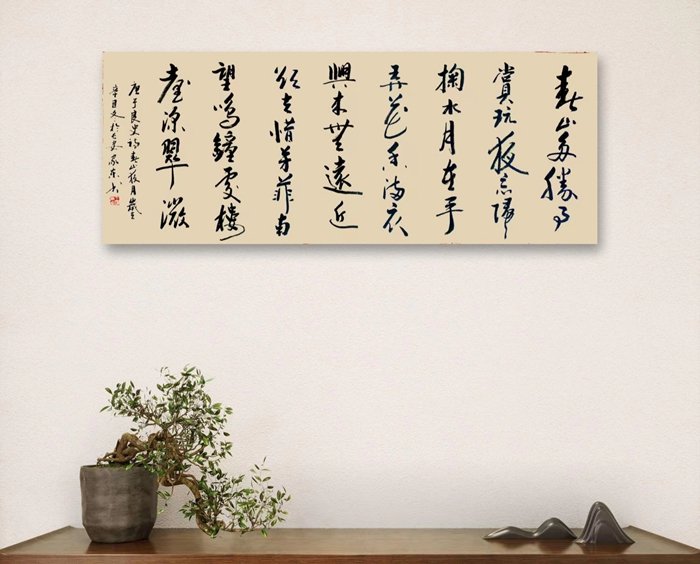 春山多勝事
賞玩夜忘歸
掬水月在手
弄花香滿衣
興來無遠近
欲去惜芳菲南
望鳴鐘處樓
臺深翠微
唐于良史詩春山夜月歲在